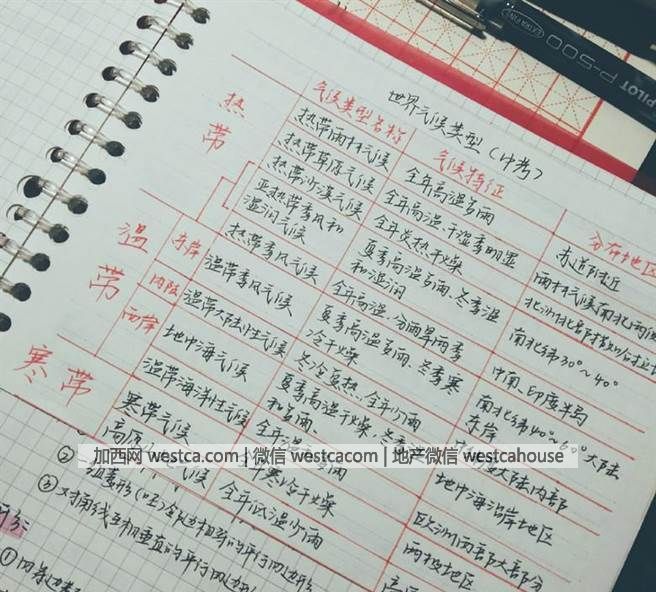 PILOT P-500
EXTRA FINE
世界气候类型(中考)
气候类型名称 气候特征 分布地区
热带
热带雨林气候 全年高温多雨 赤道附近
热带草原气候 全年高温、干湿季明显 雨林气候南北两
热带沙漠气候 全年炎热干燥
亚热带季风和 夏季高温多雨、冬季温 南北纬30°~40°
湿润气候 和湿润
热带季风气候 全年高温、分雨旱两季 中南、印度半岛
温带
东岸 温带季风气候 夏季高温多雨、冬季寒 南北纬40°~60°大陆
冷干燥 东岸
内陆 温带大陆性气候 冬冷夏热、全年少雨 大陆内部
西岸 地中海气候 夏季高温干燥、冬季 地中海沿岸地区
和多雨
温带海洋性气候 全年温 雨 欧洲西部大部分
寒带
寒带气候 寒冷干燥 两极地区
高原 气候 全年低温少雨
加西网 westca.com | 微信 westcacom | 地产微信 westcahouse
②
③对角线互相垂直的平行四边形
①四条边